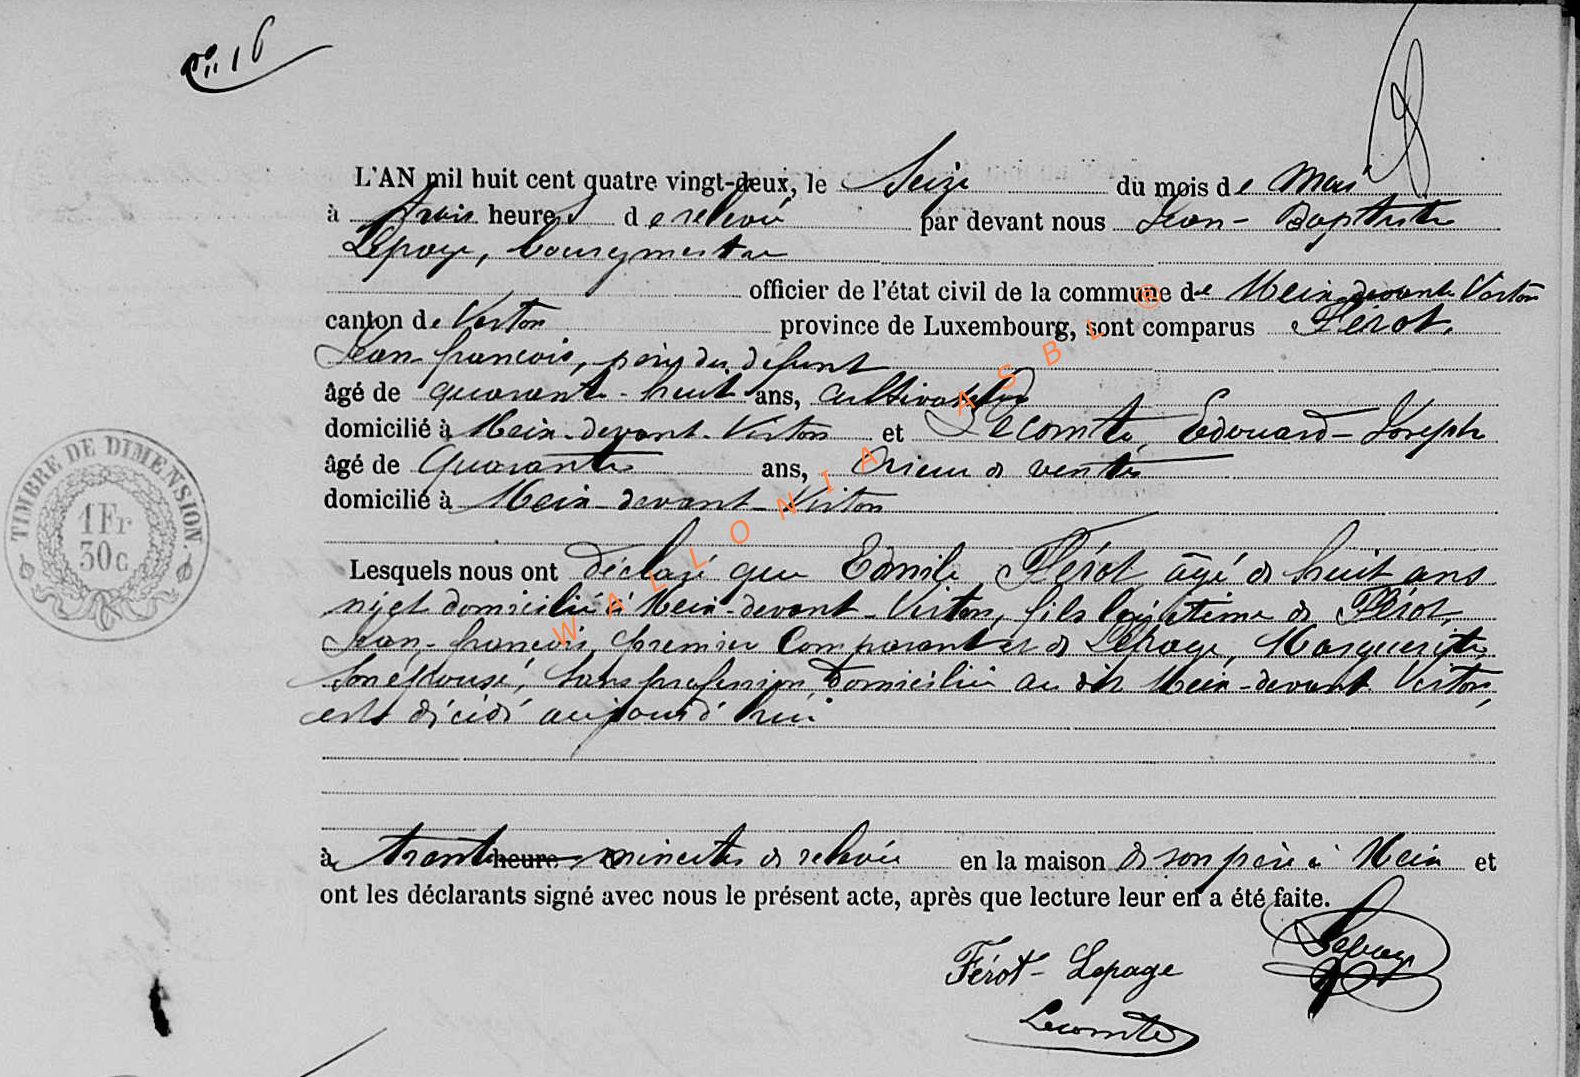 N° 16
L'AN mil huit cent quatre vingt-deux, le Seize du mois de Mai
à trois heures de relevée par devant nous Jean-Baptiste
Lepage, bourgmestre
officier de l'état civil de la commune de Meix-devant Virton
canton de Virton province de Luxembourg, sont comparus Férot,
Jean-françois, père du défunt
âgé de quarante-huit ans, cultivateur
domicilié à Meix-devant-Virton et Lecomte, Edouard-Joseph
âgé de quarante ans, crieur de ventes
domicilié à Meix-devant-Virton
Lesquels nous ont déclaré que Emile Férot âgé de huit ans
né et domicilié à Meix-devant-Virton, fils légitime de Férot,
Jean-françois, premier Comparant et de Lepage, Marguerite
son épouse, sans profession domiciliée au dit Meix-devant Virton,
est décédé aujourd'hui
à trente heure minutes de relevée en la maison de son père à Meix et
ont les déclarants signé avec nous le présent acte, après que lecture leur en a été faite.
Férot-Lepage
Lepage
Lecomte
TIMBRE DE DIMENSION.
1Fr
30c
WALLONIA ASBL ®